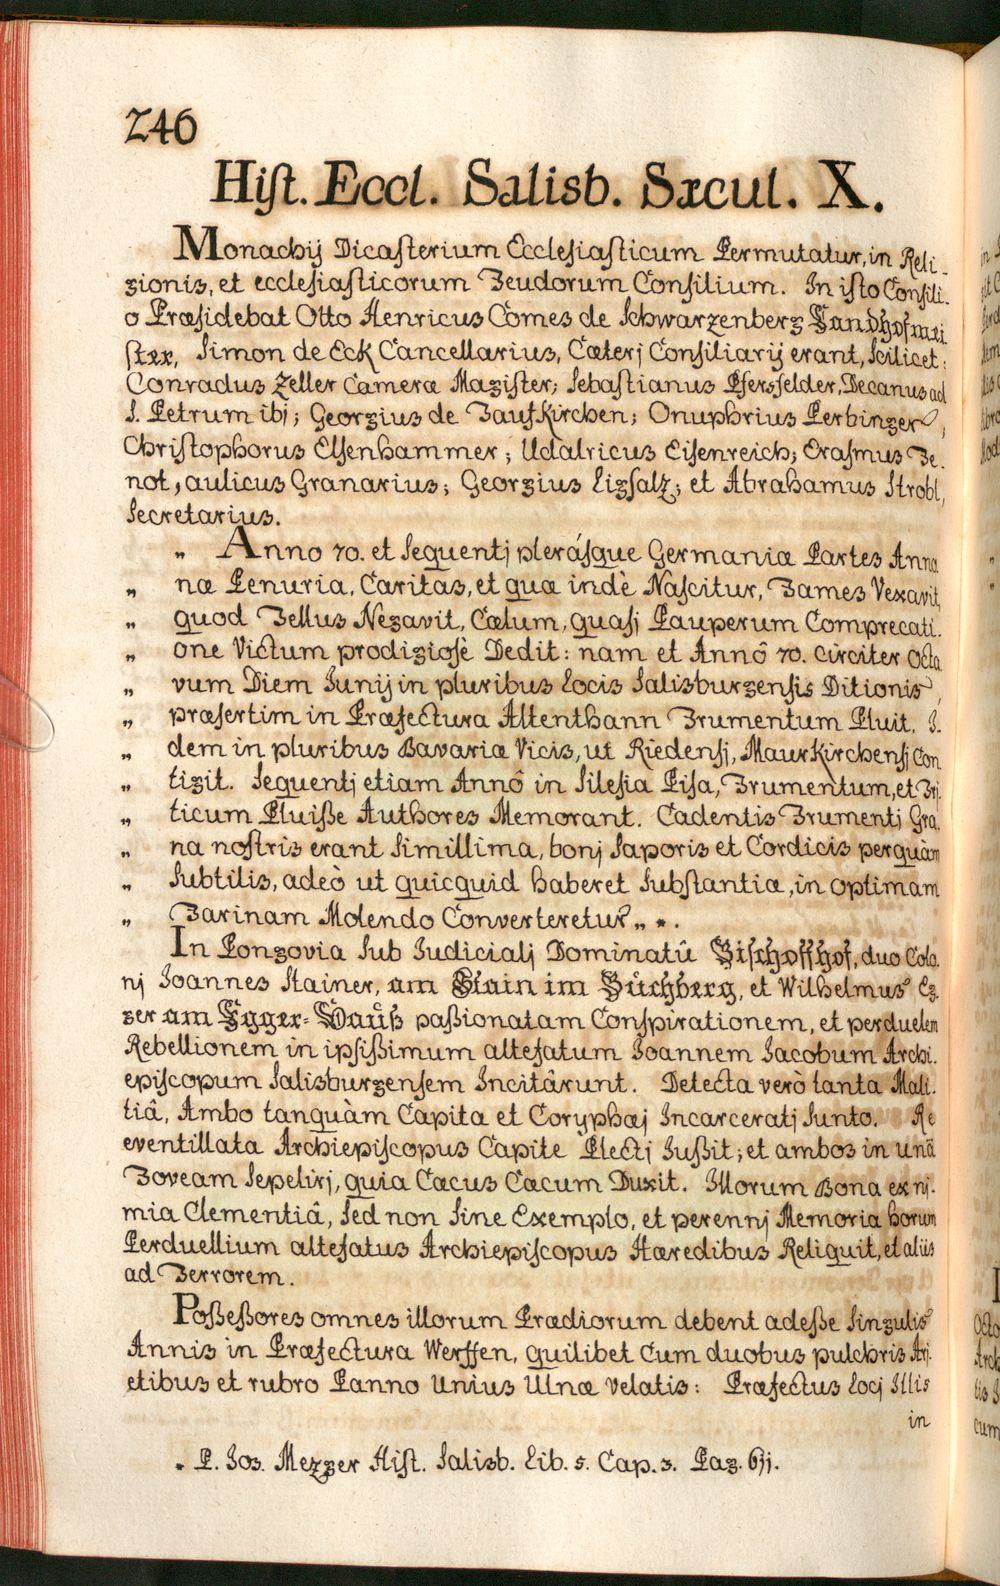 246
Hist. Eccl. Salisb. Sæcul. X.
Monachij Dicasterium Ecclesiasticum Permutatur, in Reli-
gionis, et ecclesiasticorum Feudorum Consilium. In isto Consili-
o Præsidebat Otto Henricus Comes de Schwarzenberg Landhofmei
ster, Simon de Eck Cancellarius, Cæterj Consiliarij erant, Scilicet:
Conradus Zeller Cameræ Magister; Sebastianus Pfersfelder, Decanus ad
S. Petrum ibj; Georgius de Taufkirchen; Onuphrius Perbinger,
Christophorus Elsenhammer; Udalricus Eisenreich; Erasmus Fe-
not, aulicus Granarius; Georgius Ligsalz; et Abrahamus Strobl,
Secretarius.
„ Anno 70. et Sequentj plerásque Germaniæ Partes Anno
„ næ Penuria, Caritas, et quæ indè Nascitur, Fames Vexavit,
„ quod Tellus Negavit, Cælum, quasi Pauperum Comprecati.
„ one Victum prodigiosè Dedit: nam et Annô 70. circiter Octa
„ vum Diem Junij in pluribus Locis Salisburgensis Ditionis,
„ præsertim in Præfectura Altenthann Frumentum Pluit. I-
„ dem in pluribus Bavariæ Vicis, ut Riedensj, Maurkirchensj Con
„ tigit. Sequentj etiam Annô in Silesia Pisa, Frumentum, et Tri.
„ ticum Pluisse Authores Memorant. Cadentis Frumentj Gra.
„ na nostris erant Simillima, bonj Saporis et Cordicis perquàm
„ Subtilis, adeò ut quicquid haberet Substantiæ, in optimam
„ Farinam Molendo Converteretur„ *.
In Pongovia Sub Judicialj Dominatû Bischoffhof, duo Colo.
nj Joannes Stainer, am Stain im Büchberg, et Wilhelmus Eg.
ger am Egger-Hauß paßionatam Conspirationem, et perduelem
Rebellionem in ipsißimum altefatum Joannem Jacobum Archi.
episcopum Salisburgensem Incitârunt. Detecta verò tanta Mali.
tiâ, Ambo tanquàm Capita et Coryphæj Incarceratj Sunto. Re
eventillata Archiepiscopus Capite Plectj Jußit; et ambos in unâ
Foveam Sepelirj, quia Cæcus Cæcum Duxit. Illorum Bona ex nj.
mia Clementiâ, Sed non Sine Exemplo, et perennj Memoria horum
Perduellium altefatus Archiepiscopus Hæredibus Reliquit, et aliis
ad Terrorem.
Poßeßores omnes illorum Prædiorum debent adeße Singulis
Annis in Præfectura Werffen, quilibet Cum duobus pulchris Arj.
etibus et rubro Panno Unius Ulnæ velatis: Præfectus Locj Illis
in
* P. Jos. Mezger Hist. Salisb. Lib. 5. Cap. 3. Pag. 611.